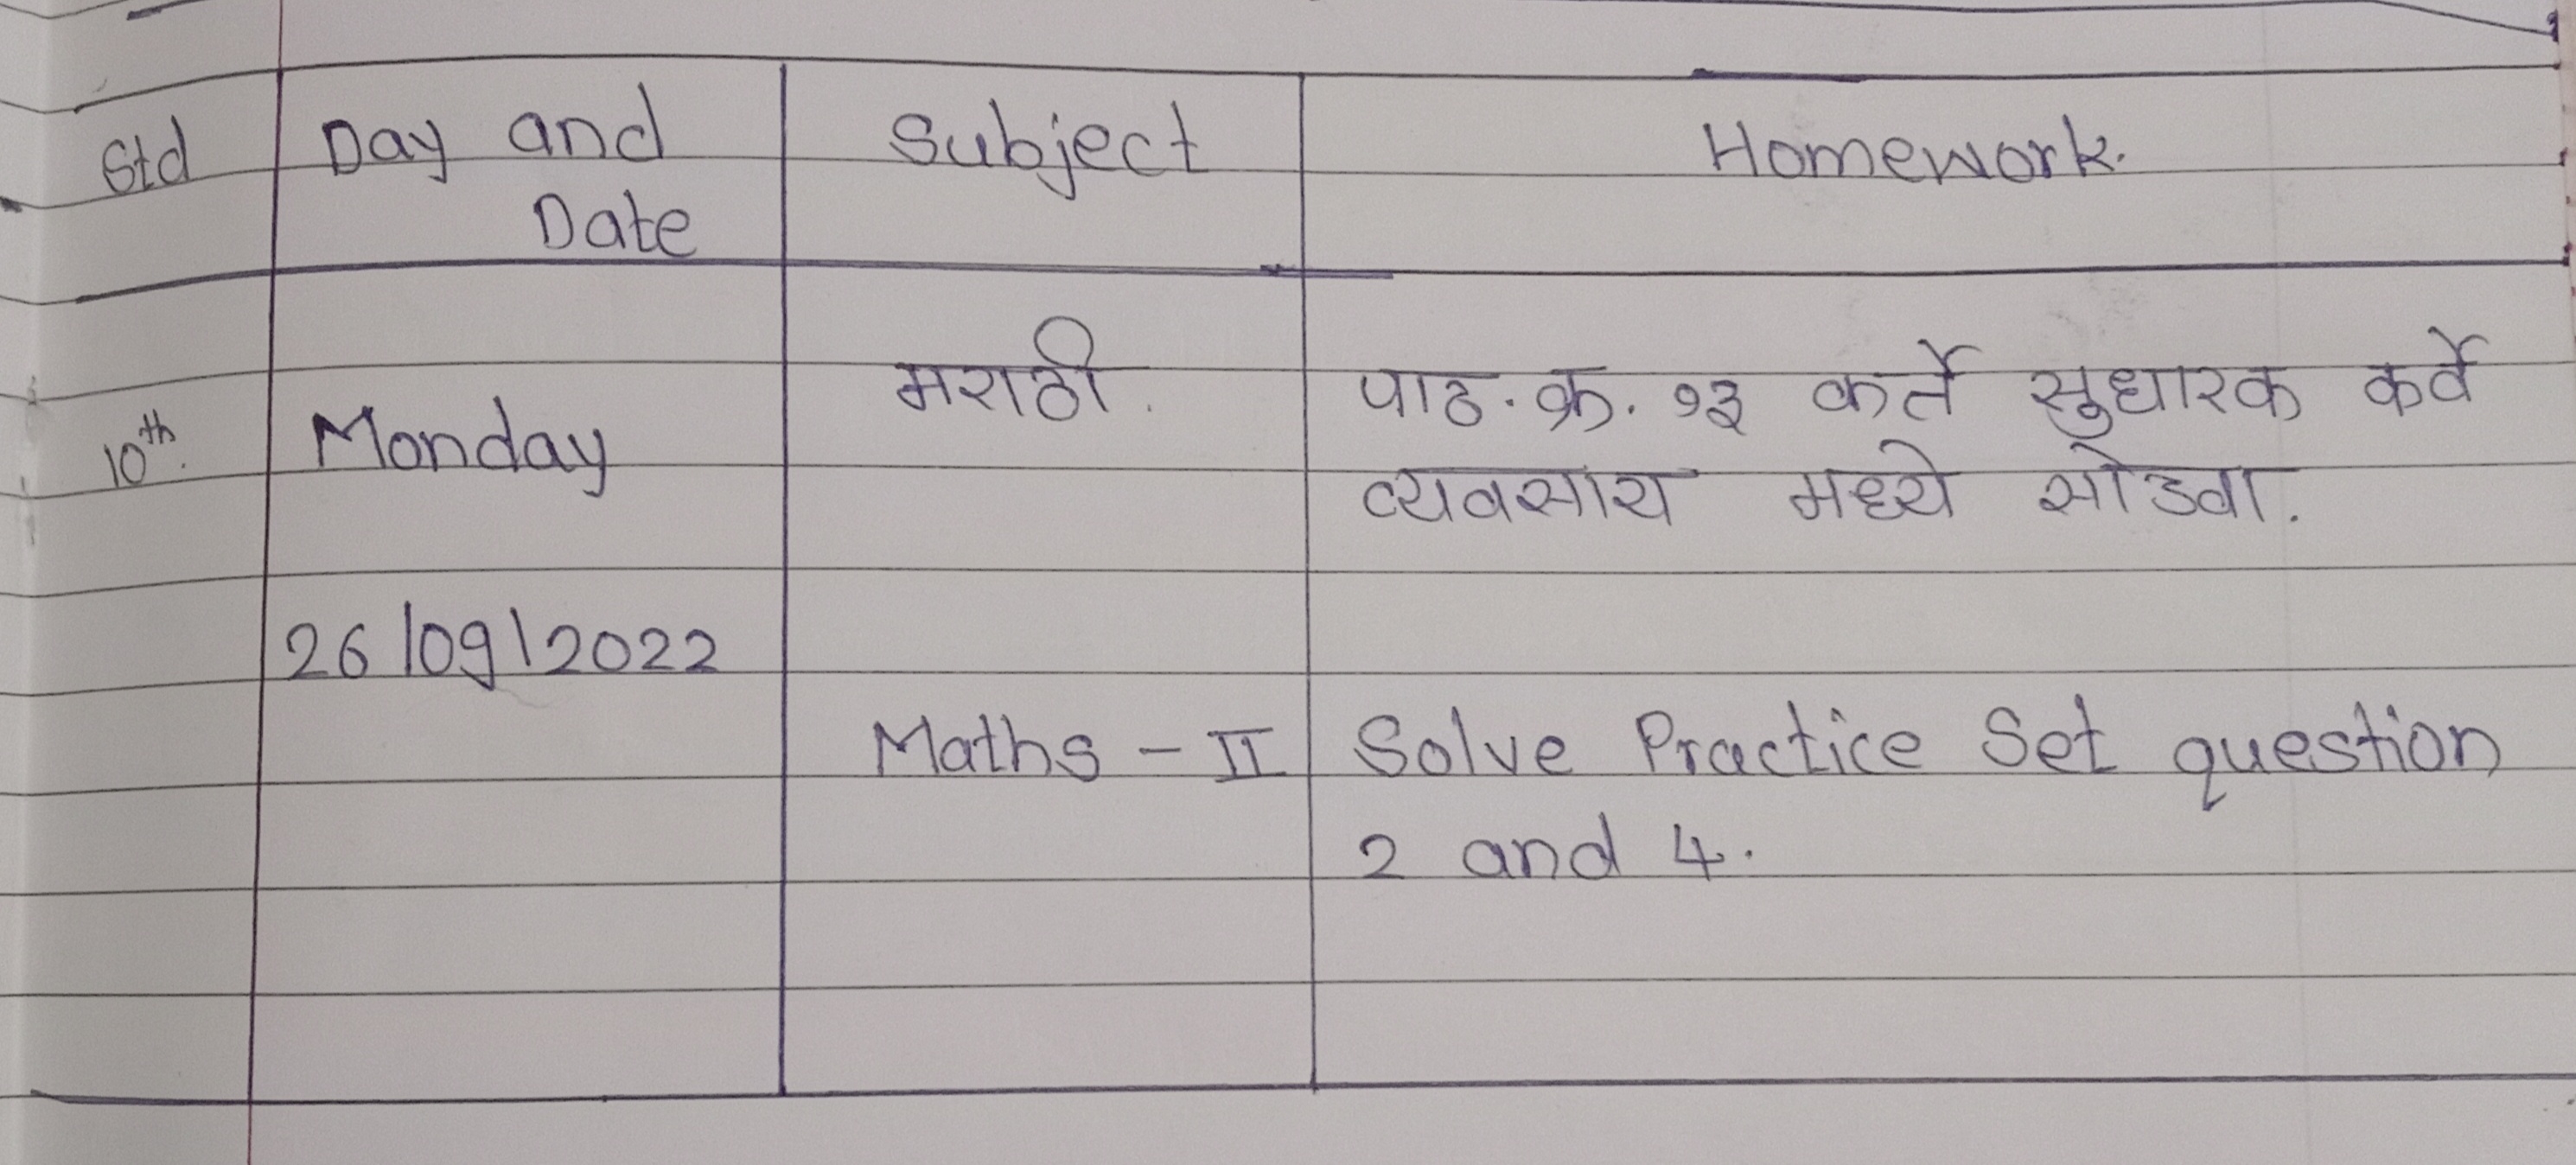 Std Day and Subject Homework.
Date
मराठी. पाठ. क्र. १३ कर्ते सुधारक कर्वे
10th. Monday व्यवसाय मध्ये सोडवा.
26/09/2022
Maths - II Solve Practice Set question
2 and 4.